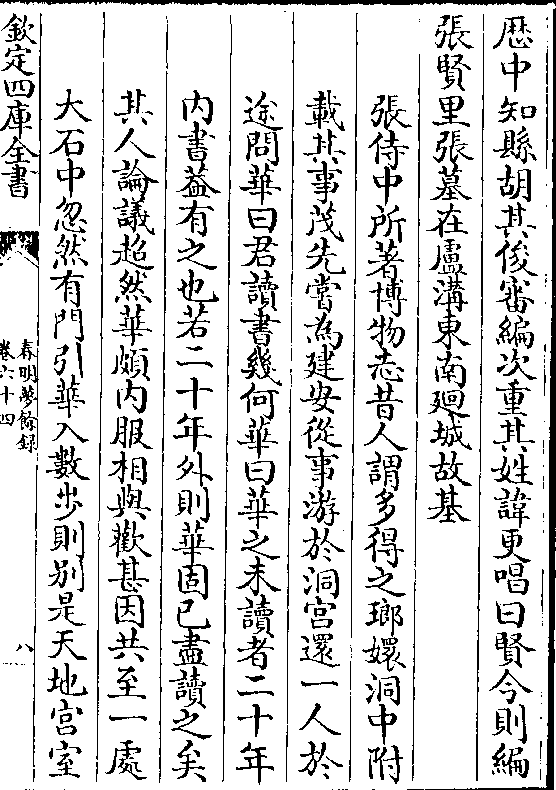 歴中知縣胡其俊審編次重其姓諱更唱曰賢今則編
張賢里張墓在盧溝東南廻城故基
張侍中所著博物志昔人謂多得之瑯嬛洞中附
載其事茂先嘗為建安從事游於洞宫還一人於
途問華曰君讀書幾何華曰華之未讀者二十年
内書葢有之也若二十年外則華固已盡讀之矣
其人論議超然華頗内服相與歡甚因共至一處
大石中忽然有門引華入數步則别是天地宫室
欽定四庫全書
春明夢餘録
卷六十四
八